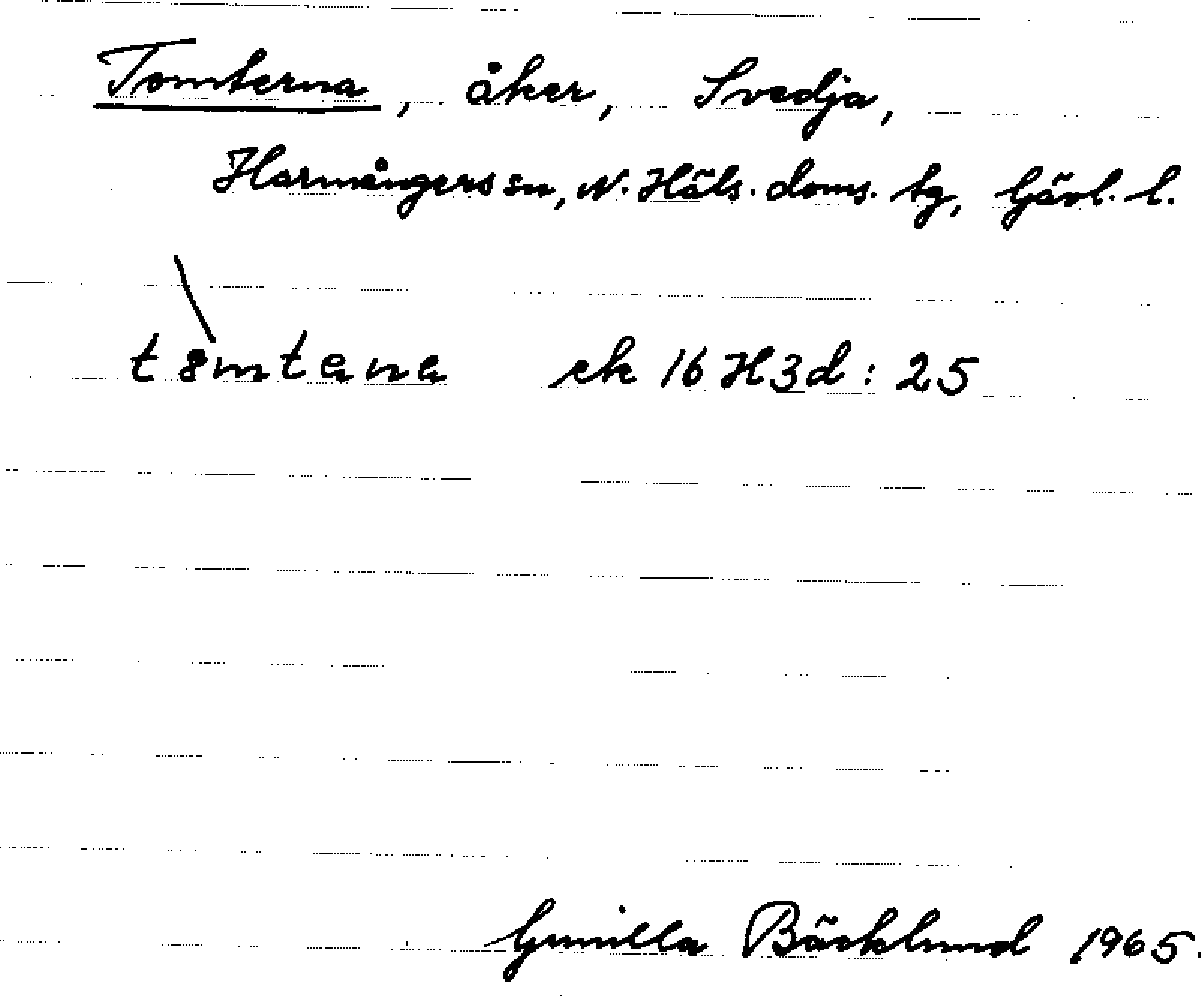 Tomterna, åker, Svedja,
Harmångers sn, N. Häls. doms. tg, Gävl. l.
\
tômtena ek 16H3d : 25
Gunilla Bäcklund 1965.